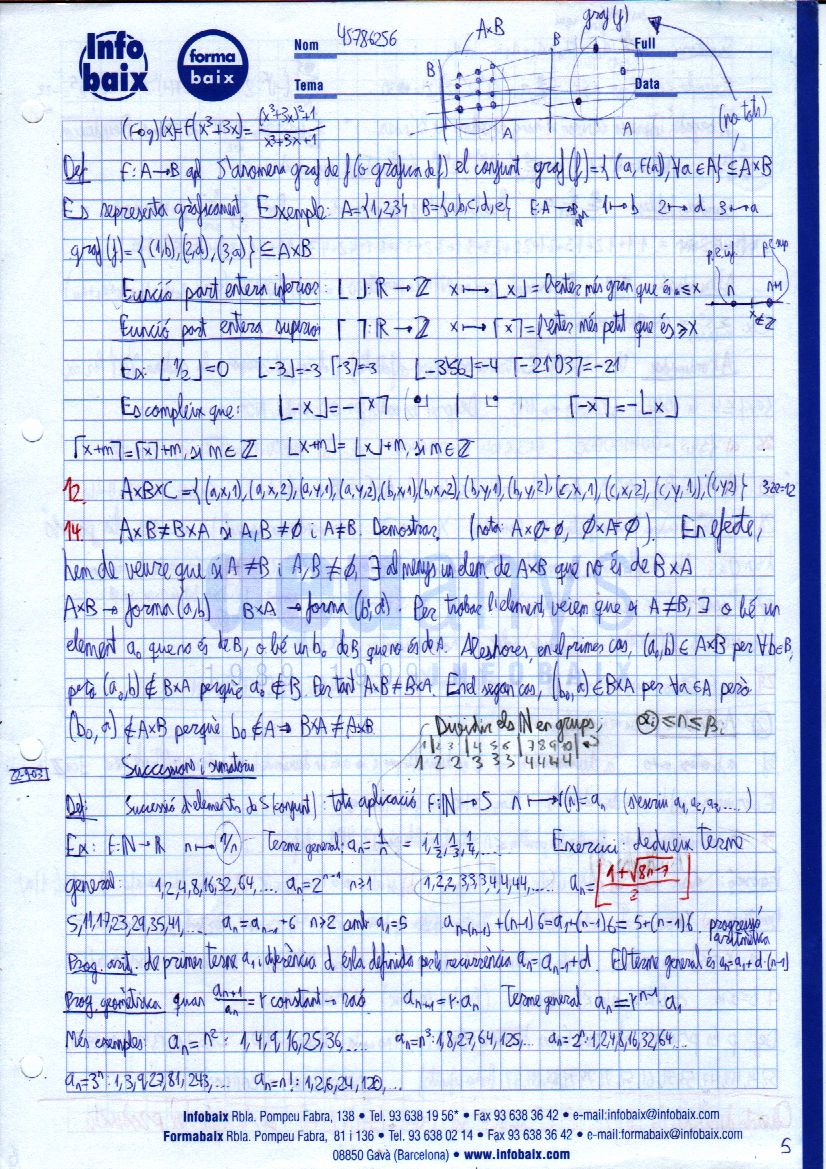 Info baix
forma baix
Nom 45786256
Full
Tema
Data
A×B
graf(f)
B
A
B
A
(no tots)
(f∘g)(x)=f(x³+3x)= (x³+3x)²+1 / x³+3x+1
Def f:A→B apl S'anomena graf de f (o gràfica de f) el conjunt graf(f)={(a,f(a)), ∀a∈A} ⊆ A×B
Es representa gràficament. Exemple: A={1,2,3} B={a,b,c,d,e} f:A→B 1↦b 2↦d 3↦a
graf(f)={(1,b),(2,d),(3,a)} ⊆ A×B
p.e.inf. p.e.sup
n n+1
x∉ℤ
Funció part entera inferior: ⌊ ⌋:ℝ→ℤ x↦⌊x⌋=l'enter més gran que és ≤x
Funció part entera superior ⌈ ⌉:ℝ→ℤ x↦⌈x⌉=l'enter més petit que és ≥x
Ex: ⌊1/2⌋=0 ⌊-3⌋=-3 ⌈-3⌉=-3 ⌊-3'56⌋=-4 ⌈-21'037⌉=-21
Es compleix que: ⌊-x⌋=-⌈x⌉ ⌈-x⌉=-⌊x⌋
⌈x+m⌉=⌈x⌉+m, si m∈ℤ ⌊x+m⌋=⌊x⌋+m, si m∈ℤ
12. A×B×C={(a,x,1),(a,x,2),(a,y,1),(a,y,2),(b,x,1),(b,x,2),(b,y,1),(b,y,2),(c,x,1),(c,x,2),(c,y,1),(c,y,2)} 3·2·2=12
14. A×B≠B×A si A,B≠∅ i A≠B. Demostrar. (nota: A×∅=∅, ∅×A=∅). En efecte,
hem de veure que si A≠B i A,B≠∅, ∃ al menys un elem. de A×B que no és de B×A
A×B→forma (a,b) B×A→forma (b,a). Per trobar l'element, veiem que si A≠B, ∃ o bé un
element a₀ que no és de B, o bé un b₀ de B que no és de A. Aleshores, en el primer cas, (a₀,b)∈A×B per ∀b∈B,
però (a₀,b)∉B×A perquè a₀∉B. Per tant A×B≠B×A. En el segon cas, (b₀,a)∈B×A per ∀a∈A però
(b₀,a)∉A×B perquè b₀∉A ⇒ B×A≠A×B
Dividir els ℕ en grups, αᵢ≤n≤βᵢ
1|2 3|4 5 6|7 8 9 10|
1 2 2 3 3 3 4 4 4 4
22-9-03
Successions i sumatoris
Def: Successió d'elements de S (conjunt): tota aplicació f:ℕ→S n↦f(n)=aₙ (s'escriu a₁, a₂, a₃, ....)
Ex: f:ℕ→ℝ n↦1/n Terme general: aₙ=1/n = 1,1/2,1/3,1/4,... Exercici: dedueix terme
general: 1,2,4,8,16,32,64,.... aₙ=2ⁿ⁻¹ n≥1 1,2,2,3,3,3,4,4,4,.... aₙ=⌊(1+√(8n-7))/2⌋
5,11,17,23,29,35,41,... aₙ=aₙ₋₁+6 n≥2 amb a₁=5 aₙ₋₍ₙ₋₁₎+(n-1)6=a₁+(n-1)6=5+(n-1)6 progressió aritmètica
Prog. arit. de primer terme a₁ i diferència d és la definida per la recurrència aₙ=aₙ₋₁+d. El terme general és aₙ=a₁+d·(n-1)
Prog. geomètrica quan aₙ₊₁/aₙ=r constant→raó aₙ₊₁=r·aₙ Terme general aₙ=rⁿ⁻¹·a₁
Més exemples: aₙ=n²: 1,4,9,16,25,36,... aₙ=n³:1,8,27,64,125,... aₙ=2ⁿ:1,2,4,8,16,32,64...
aₙ=3ⁿ:1,3,9,27,81,243,... aₙ=n!:1,2,6,24,120,...
Infobaix Rbla. Pompeu Fabra, 138 • Tel. 93 638 19 56* • Fax 93 638 36 42 • e-mail:infobaix@infobaix.com
Formabaix Rbla. Pompeu Fabra, 81 i 136 • Tel. 93 638 02 14 • Fax 93 638 36 42 • e-mail:formabaix@infobaix.com
08850 Gavà (Barcelona) • www.infobaix.com
5